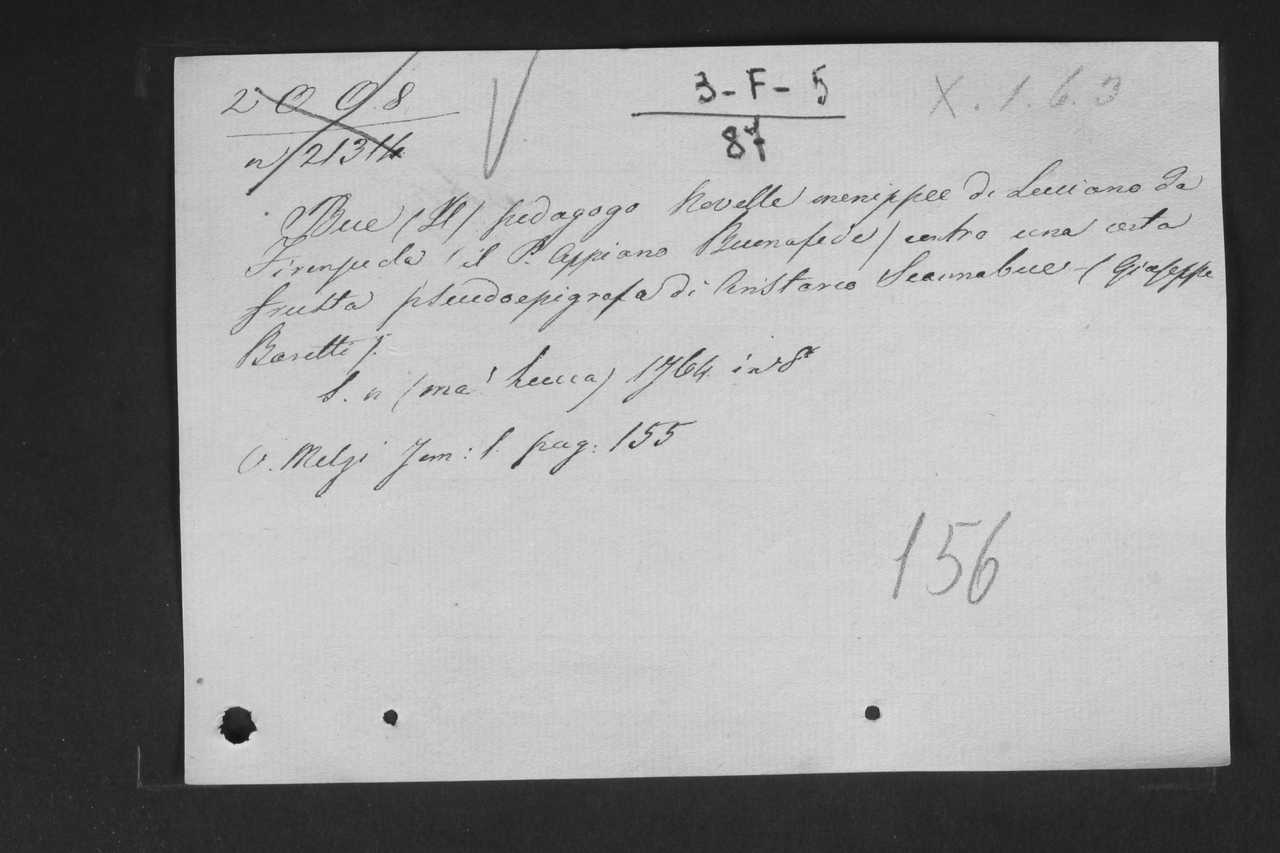 2 0 0.8
n/21314
3-F-5
87
X.1.6.3
Bue (Il) pedagogo Novelle menippee di Luciano da
Firenzuola (il P. Appiano Buonafede) contro una certa
frusta pseudoepigrafa di Aristarco Scannabue - (Giuseppe
Baretti).
S. n (ma Lucca) 1764 in 8°
V. Melzi Tom: 1. pag: 155
156